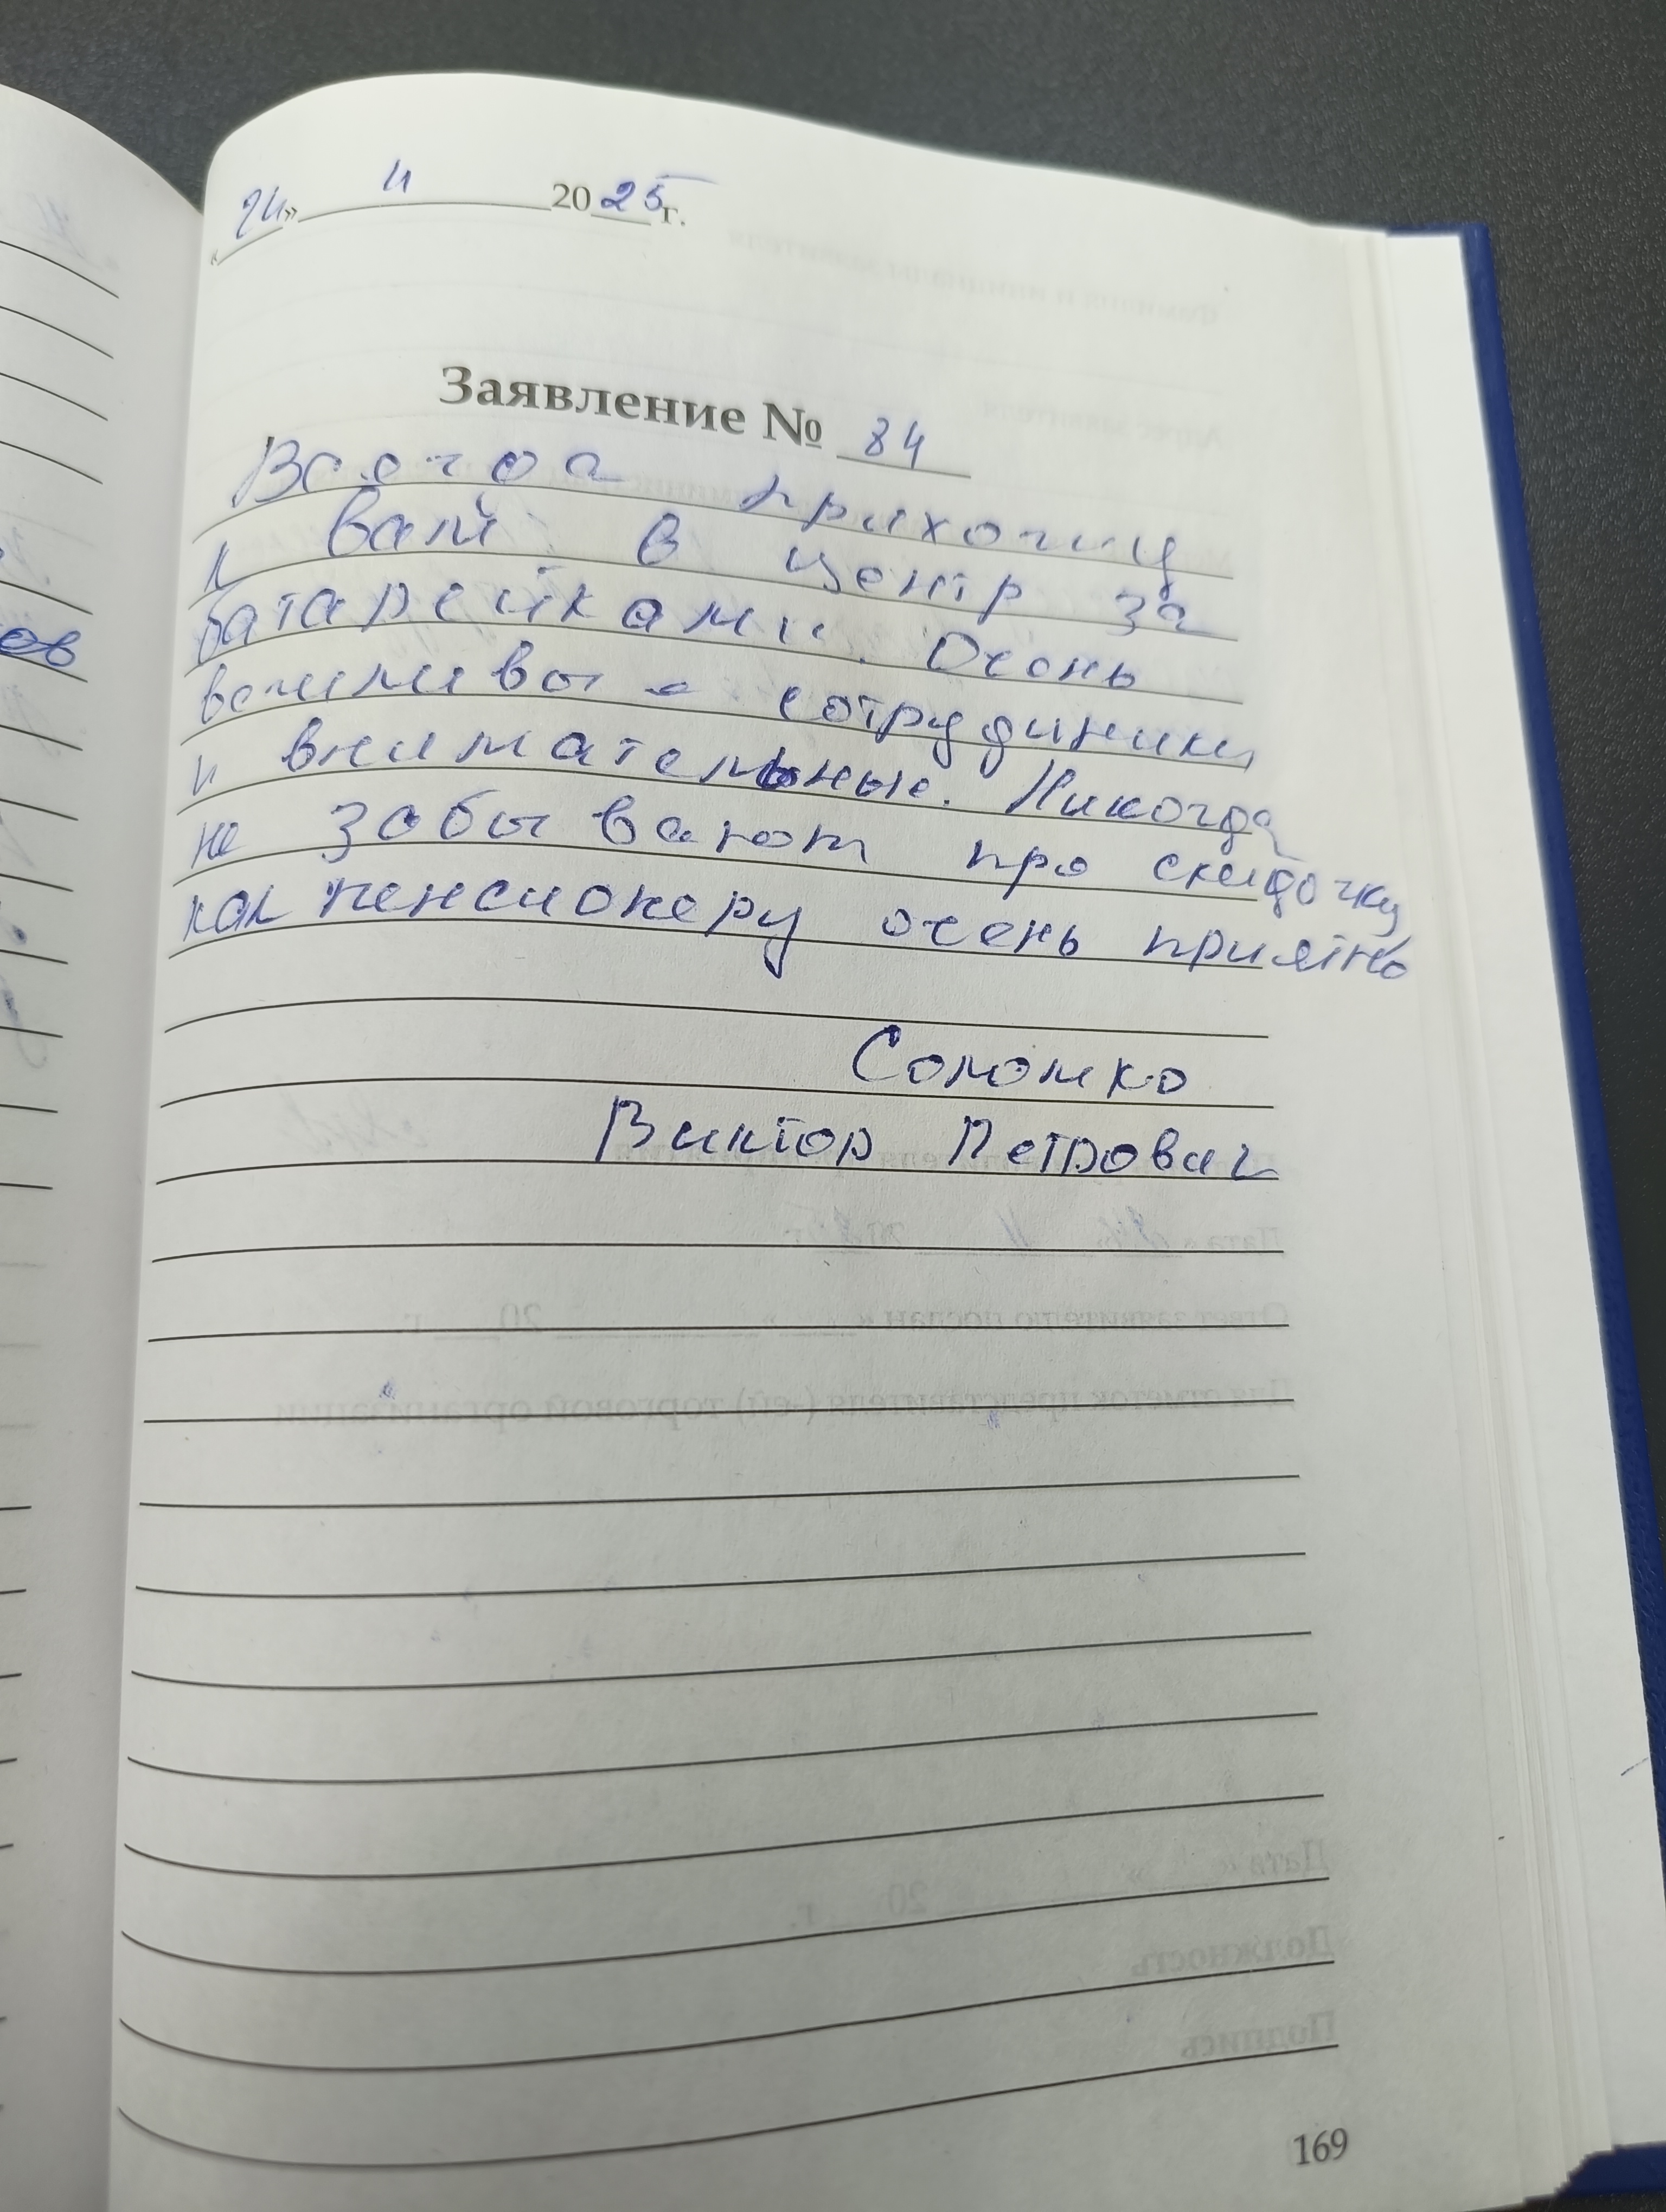 «24» 11 2025 г.
Заявление № 84
Всегда прихожу
к вам в центр за
батарейками. Очень
вежливые сотрудники
и внимательные. Никогда
не забывают про скидочку
как пенсионеру очень приятно
Соломко
Виктор Петрович
169